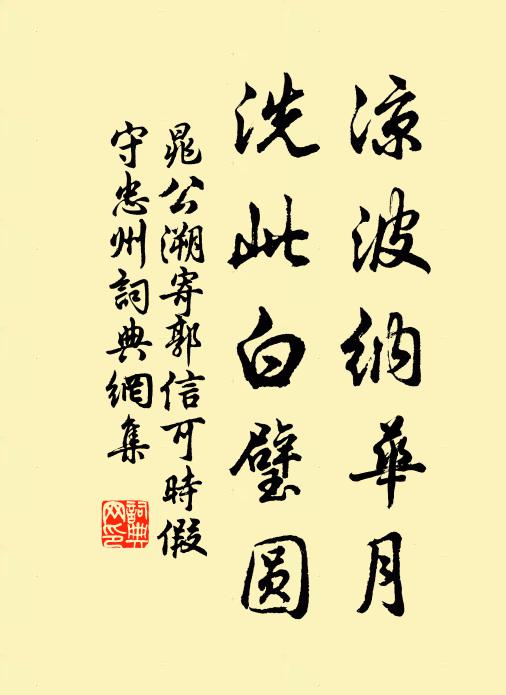 凉波纳华月
洗此白璧圆
晁公溯寄郭信可時假
守忠州詞典網集
詞典网印